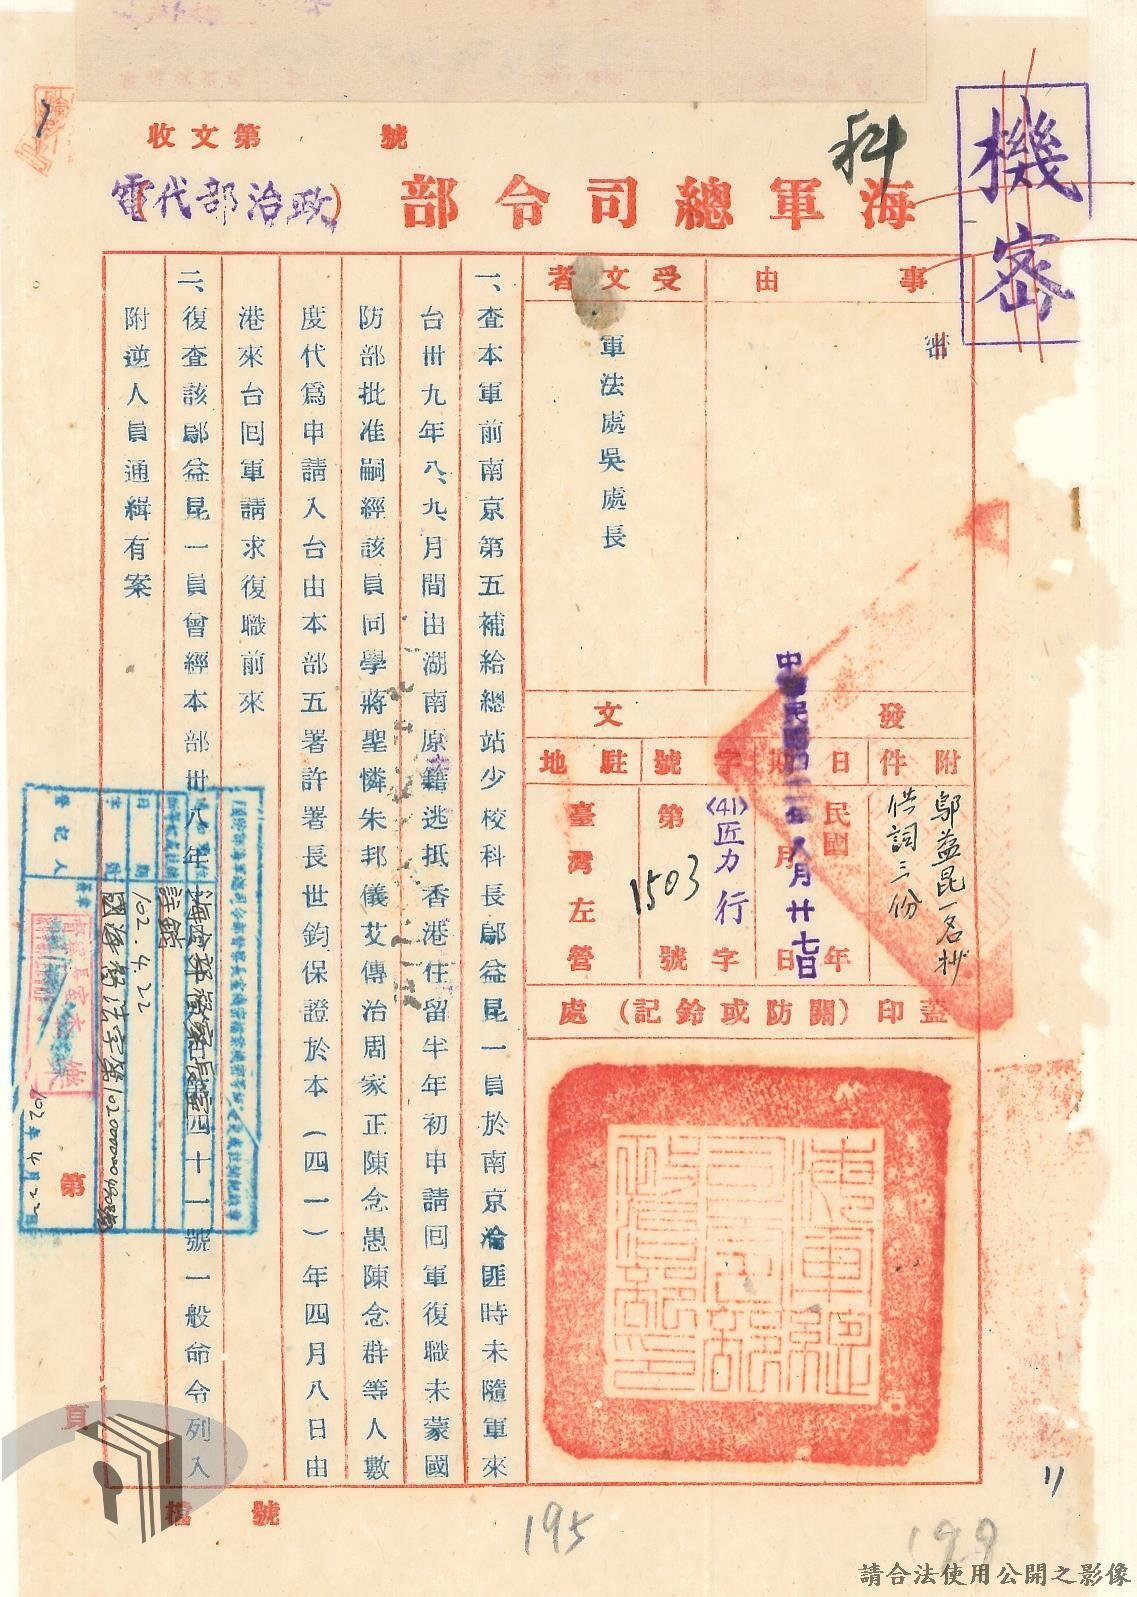 機密
科
收文第　號
海軍總司令部（政治部代電）
事由
密
受文者
軍法處吳處長
發文
附件
鄔益昆一名抄
供詞三份
日期
民國　年　月　日
中華民國四十一年八月廿七日
字號
(41)匠力行字
第1503號
駐地
臺灣左營
蓋印（關防或鈐記）處
一、查本軍前南京第五補給總站少校科長鄔益昆一員於南京淪匪時未隨軍來
台卅九年八、九、月間由湖南原籍逃抵香港住留半年初申請回軍復職未蒙國
防部批准嗣經該員同學蔣聖憐朱邦儀艾傳治周家正陳念愚陳念群等人數
度代爲申請入台由本部五署許署長世鈞保證於本（四一）年四月八日由
港來台回軍請求復職前來
二、復查該鄔益昆一員曾經本部卅八年　四十一號一般命令列入
附逆人員通緝有案
註銷
日期
102.4.22
字號
登記人
102年4月22日
第　頁
檔號
195
199
11
請合法使用公開之影像